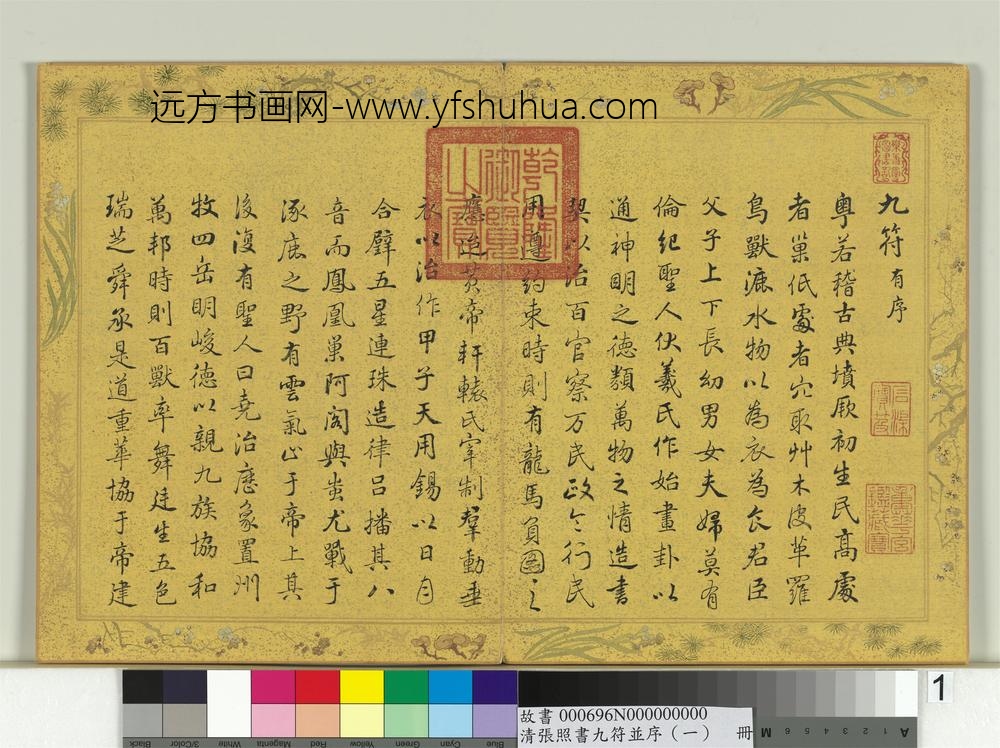 远方书画网-www.yfshuhua.com
樂善堂圖書記
石渠寶笈
重華宮鑑藏寶
乾隆御覽之寶
九符 有序
粵若稽古典墳厥初生民髙處
者巢低處者穴取艸木皮革羅
鳥獸漉水物以為衣為食君臣
父子上下長幼男女夫婦莫有
倫紀聖人伏羲氏作始畫卦以
通神明之德類萬物之情造書
契以治百官察万民政令行民
用遵約束時則有龍馬負圖之
應迨黃帝軒轅氏宰制羣動垂
衣以治作甲子天用錫以日月
合璧五星連珠造律呂播其八
音而鳳凰巢阿閣與蚩尤戰于
涿鹿之野有雲氣止于帝上其
後復有聖人曰堯治歷象置州
牧四岳明峻德以親九族協和
萬邦時則百獸率舞廷生五色
瑞芝舜承是道重華協于帝建
1
故書 000696N000000000
清張照書九符並序（一） 冊
Black 3/Color White Magenta Red Yellow Green Cyan Blue
M 6 5 4 3 2 1 A